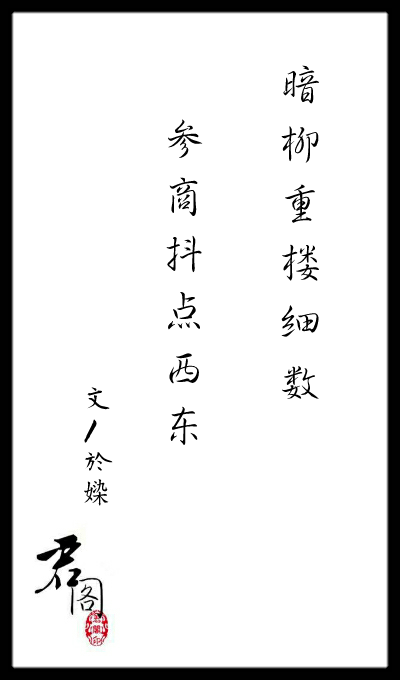 暗柳重楼细数
参商抖点西东
文/於媣
君阁